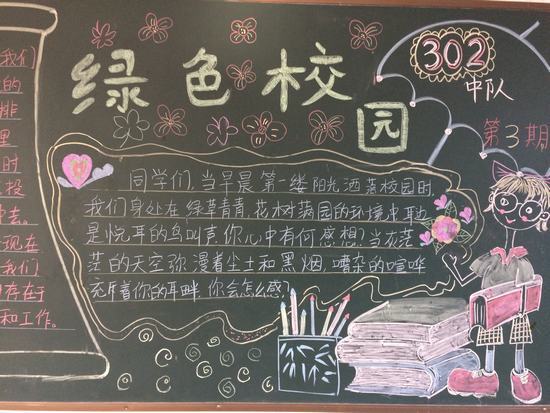 绿色校园
302
中队
第3期
同学们,当早晨第一缕阳光洒落校园时,
我们身处在绿草青青,花树满园的环境中,耳边
是悦耳的鸟叫声,你心中有何感想?当茫
茫的天空弥漫着尘土和黑烟,嘈杂的喧哗
充斥着你的耳畔,你会怎么感?
我们
的
排
里
时
投
去。
现在
我们
存在于
和工作。